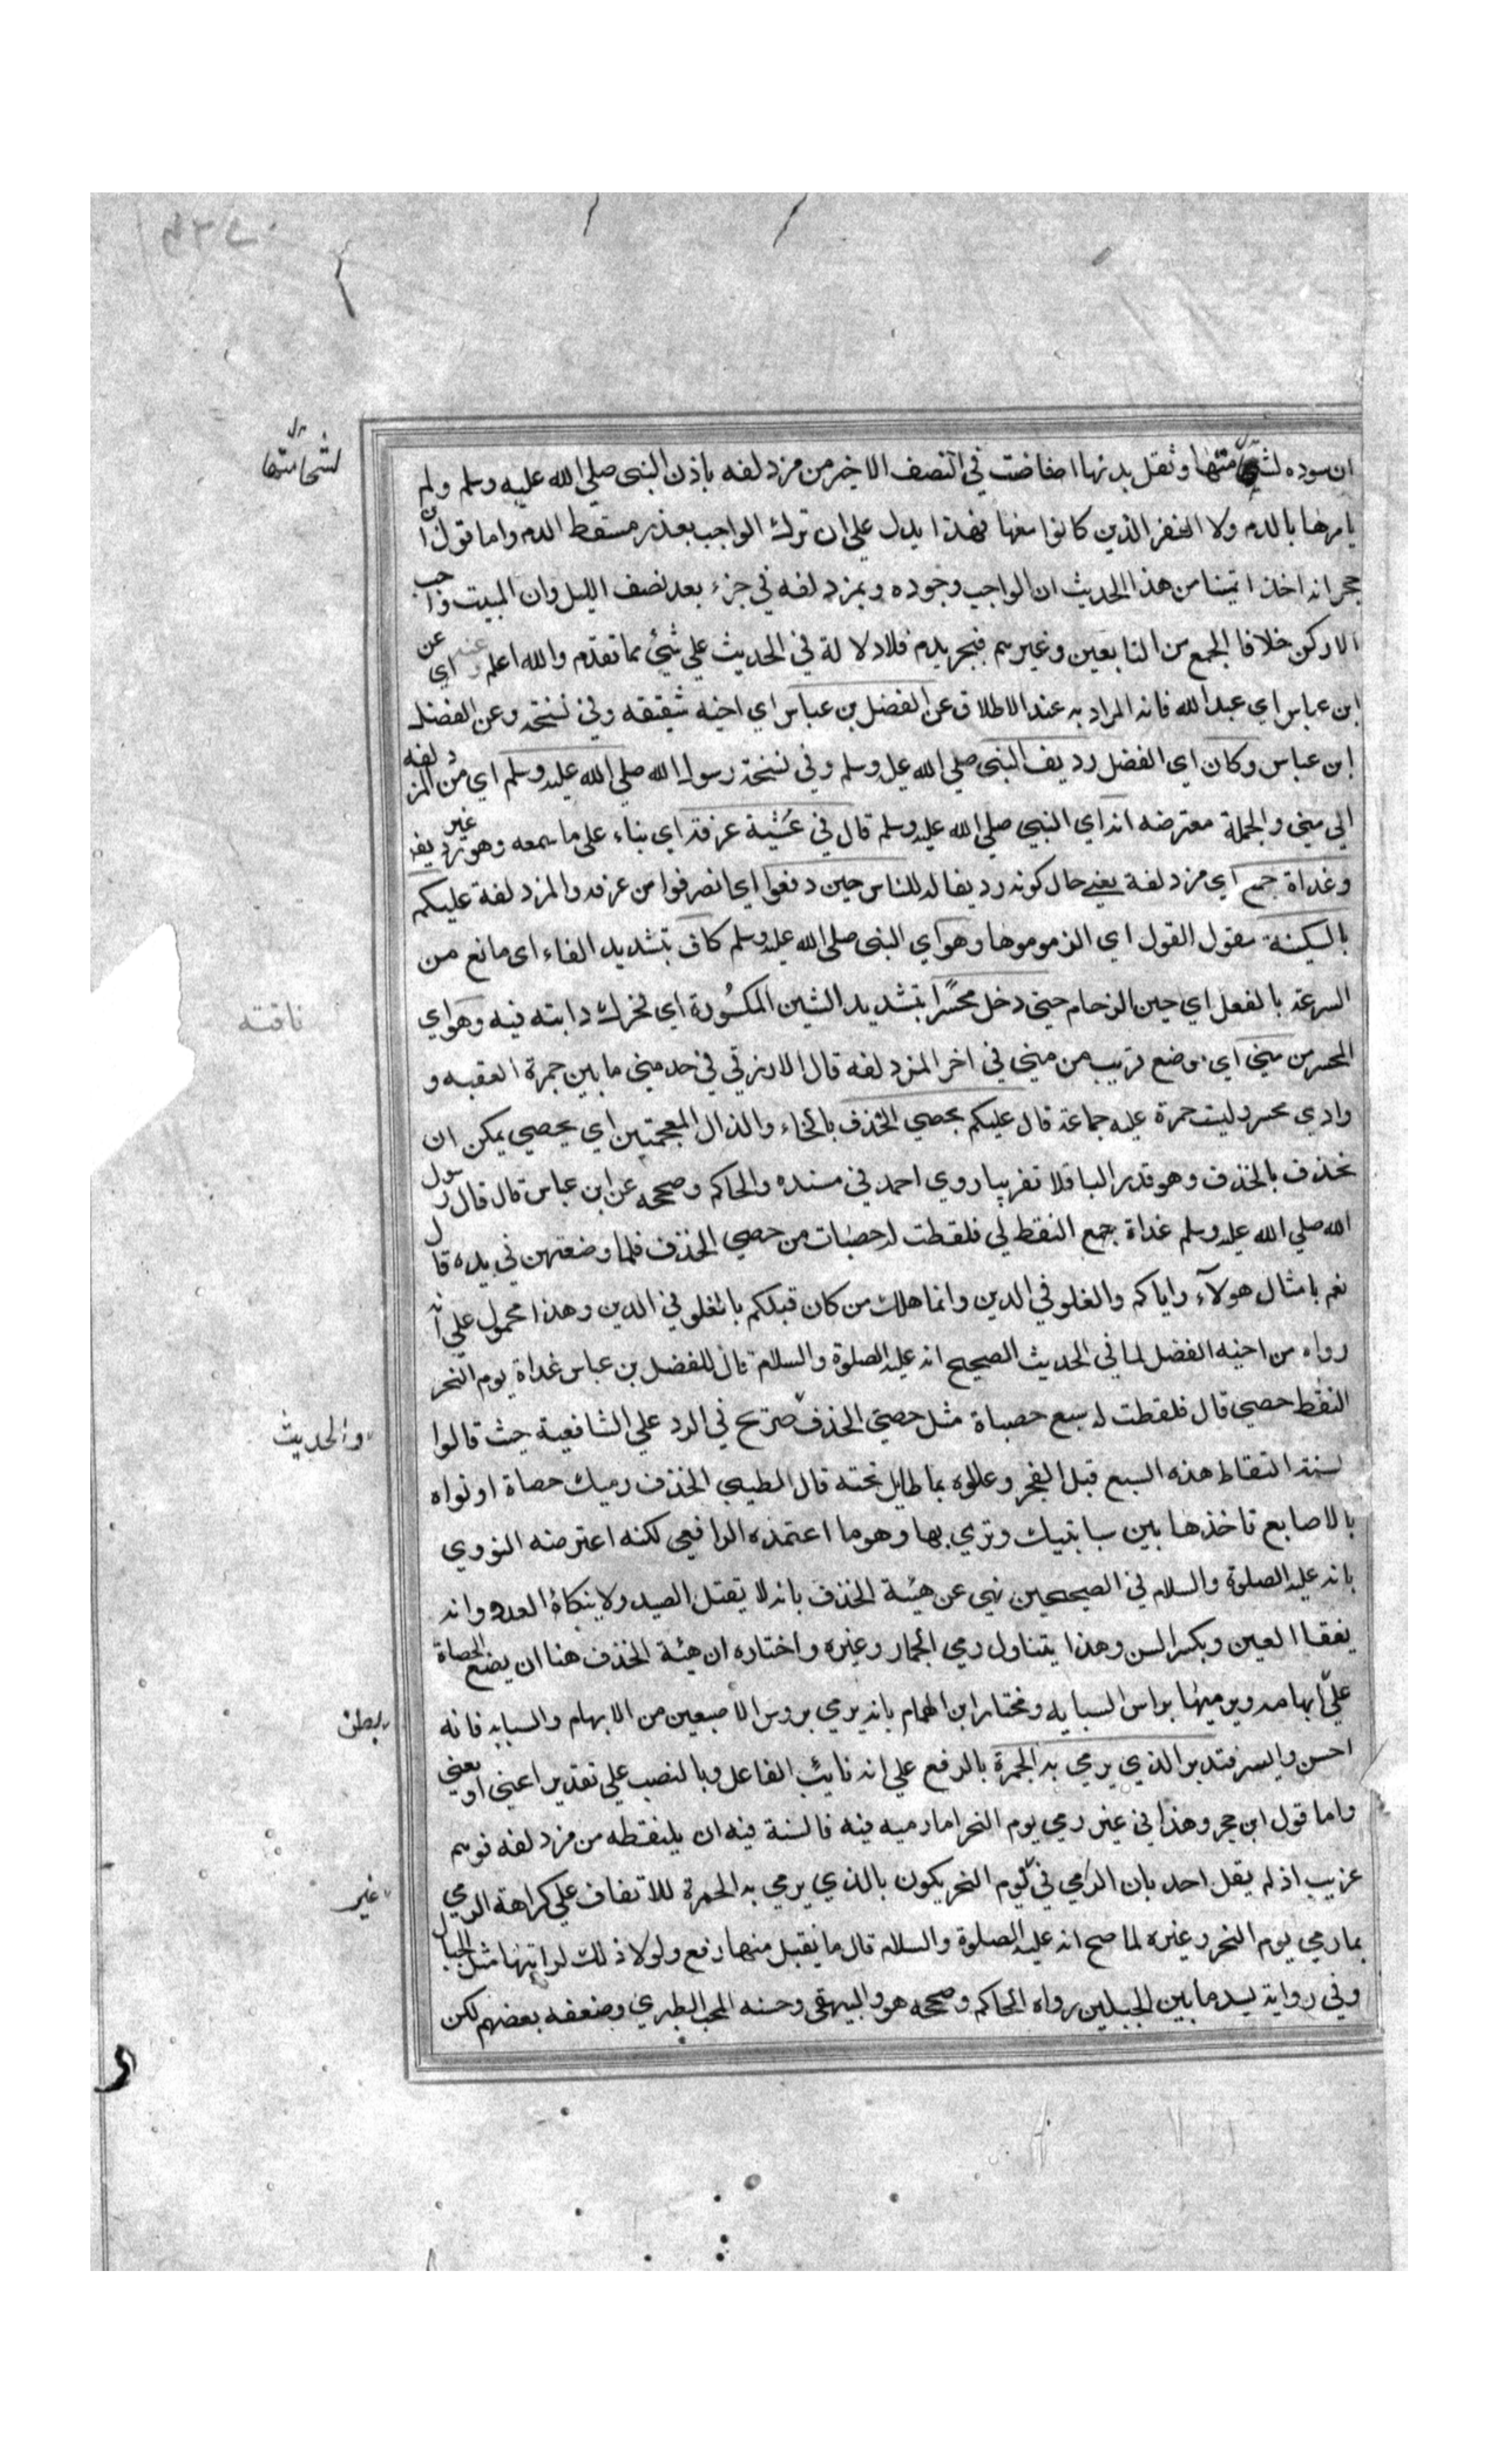 ان سوده لشحامتها وثقل بدنها افاضت في النصف الاخير من مزدلفه باذن النبى صلي الله عليه وسلم ولم
لشحامتها
يامرها بالدم ولا النفر الذين كانوا معها فهذا يدل علي ان ترك الواجب بعذر مسقط الدم واما قول ابن
حجر انه اخذ ائمتنا من هذا الحديث ان الواجب وجوده بمزدلفه في جزء بعد نصف الليل وان المبيت واجب
لا ركن خلافا لجمع من التابعين وغيرهم فيجبر بدم فلا دلالة في الحديث علي شئ مما تقدم والله اعلم وعن
ابن عباس اي عبد الله فانه المراد به عند الاطلاق عن الفضل بن عباس اي اخيه شقيقه وفي نسخة وعن الفضل
ابن عباس وكان اي الفضل رديف النبى صلي الله عليه وسلم وفي نسخة رسول الله صلي الله عليه وسلم اي من المزدلفه
الي مني والجملة معترضه انه اي النبي صلي الله عليه وسلم قال في عشية عرفة اي بناء على ما سمعه وهو غير رديف
وغداة جمع اي مزدلفة يعني حال كونه رديفا له للناس حين دفعوا اي انصرفوا من عرفه والمزدلفة عليكم
بالسكينة مقول القول اي الزموموها وهو اي النبى صلي الله عليه وسلم كاف بتشديد الفاء اى مانع من
السرعة بالفعل اي حين الزحام حتى دخل محسرا بتشديد الشين المكسورة اي تحرك دابته فيه وهو اي
ناقته
المحسر من مني اي موضع قريب من مني في اخر المزدلفه قال الازرقي في حد مني ما بين جمرة العقبه و
وادي محسر وليت جمرة عليه جماعة قال عليكم بحصي الخذف بالخاء والذال المعجمتين اي بحصي يمكن ان
تخذف بالخذف وهو قدر الباقلا تقريبا روي احمد في مسنده والحاكم وصححه عن ابن عباس قال قال رسول
الله صلي الله عليه وسلم غداة جمع التقط لي فلقطت له حصيات من حصي الخذف فلما وضعتهن في يده قال
نعم بامثال هولآء واياكم والغلو في الدين وانما هلك من كان قبلكم بالغلو في الدين وهذا محمول علي انه
رواه من اخيه الفضل لما في الحديث الصحيح انه عليه الصلوة والسلام قال للفضل بن عباس غداة يوم النحر
التقط حصي قال فلقطت له سبع حصياة مثل حصي الخذف صريح في الرد علي الشافعية حيث قالوا
والحديث
لسنة التقاط هذه السبع قبل الفجر وعللوه بما طايل تحته قال الطيبي الخذف رميك حصاة او نواه
بالاصابع تاخذها بين سبابتيك وترمي بها وهو ما اعتمده الرافعي لكنه اعترضه النووي
بانه عليه الصلوة والسلام في الصحيحين نهي عن هيئة الخذف بانه لا يقتل الصيد ولا ينكاء العدو وانه
يفقا العين ويكسر السن وهذا يتناول رمي الجمار وغيره واختاره ان هيئة الخذف هنا ان يضع الحصاة
علي ابهامه ويرميها براس السبابه ومختار ابن الهمام بانه يرمي بروس الاصبعين من الابهام والسبابه فانه
ببطن
احسن وايسر فتدبر الذي يرمي به الجمرة بالرفع علي انه نايب الفاعل وبالنصب علي تقدير اعني او يعني
واما قول ابن حجر وهذا في غير رمي يوم النحر اما رميه فيه فالسنة فيه ان يلتقطه من مزدلفه فوهم
غريب اذ لم يقل احد بان الرمي في يوم النحر يكون بالذي يرمي به الجمرة للاتفاق علي كراهة الرمي
غير
بما رمي يوم النحر وغيره لما صح انه عليه الصلوة والسلام قال ما يقبل منها رفع ولولا ذلك لرايتها مثل الجبال
وفي رواية لسد ما بين الجبلين رواه الحاكم وصححه هو والبيهقى وحسنه المحب الطبري وضعفه بعضهم لكن